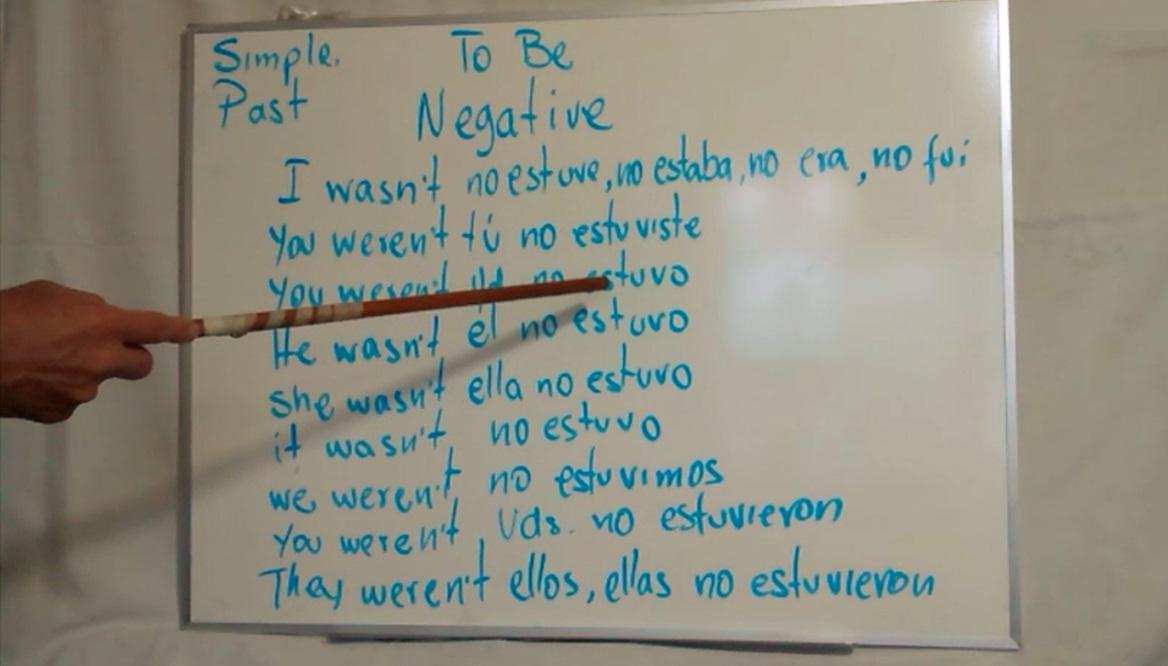 Simple. To Be
Past Negative
I wasn't no estuve, no estaba, no era, no fui
You weren't tú no estuviste
You weren't Ud no estuvo
He wasn't él no estuvo
She wasn't ella no estuvo
it wasn't, no estuvo
we weren't, no estuvimos
You weren't, Uds. no estuvieron
They weren't ellos, ellas no estuvieron